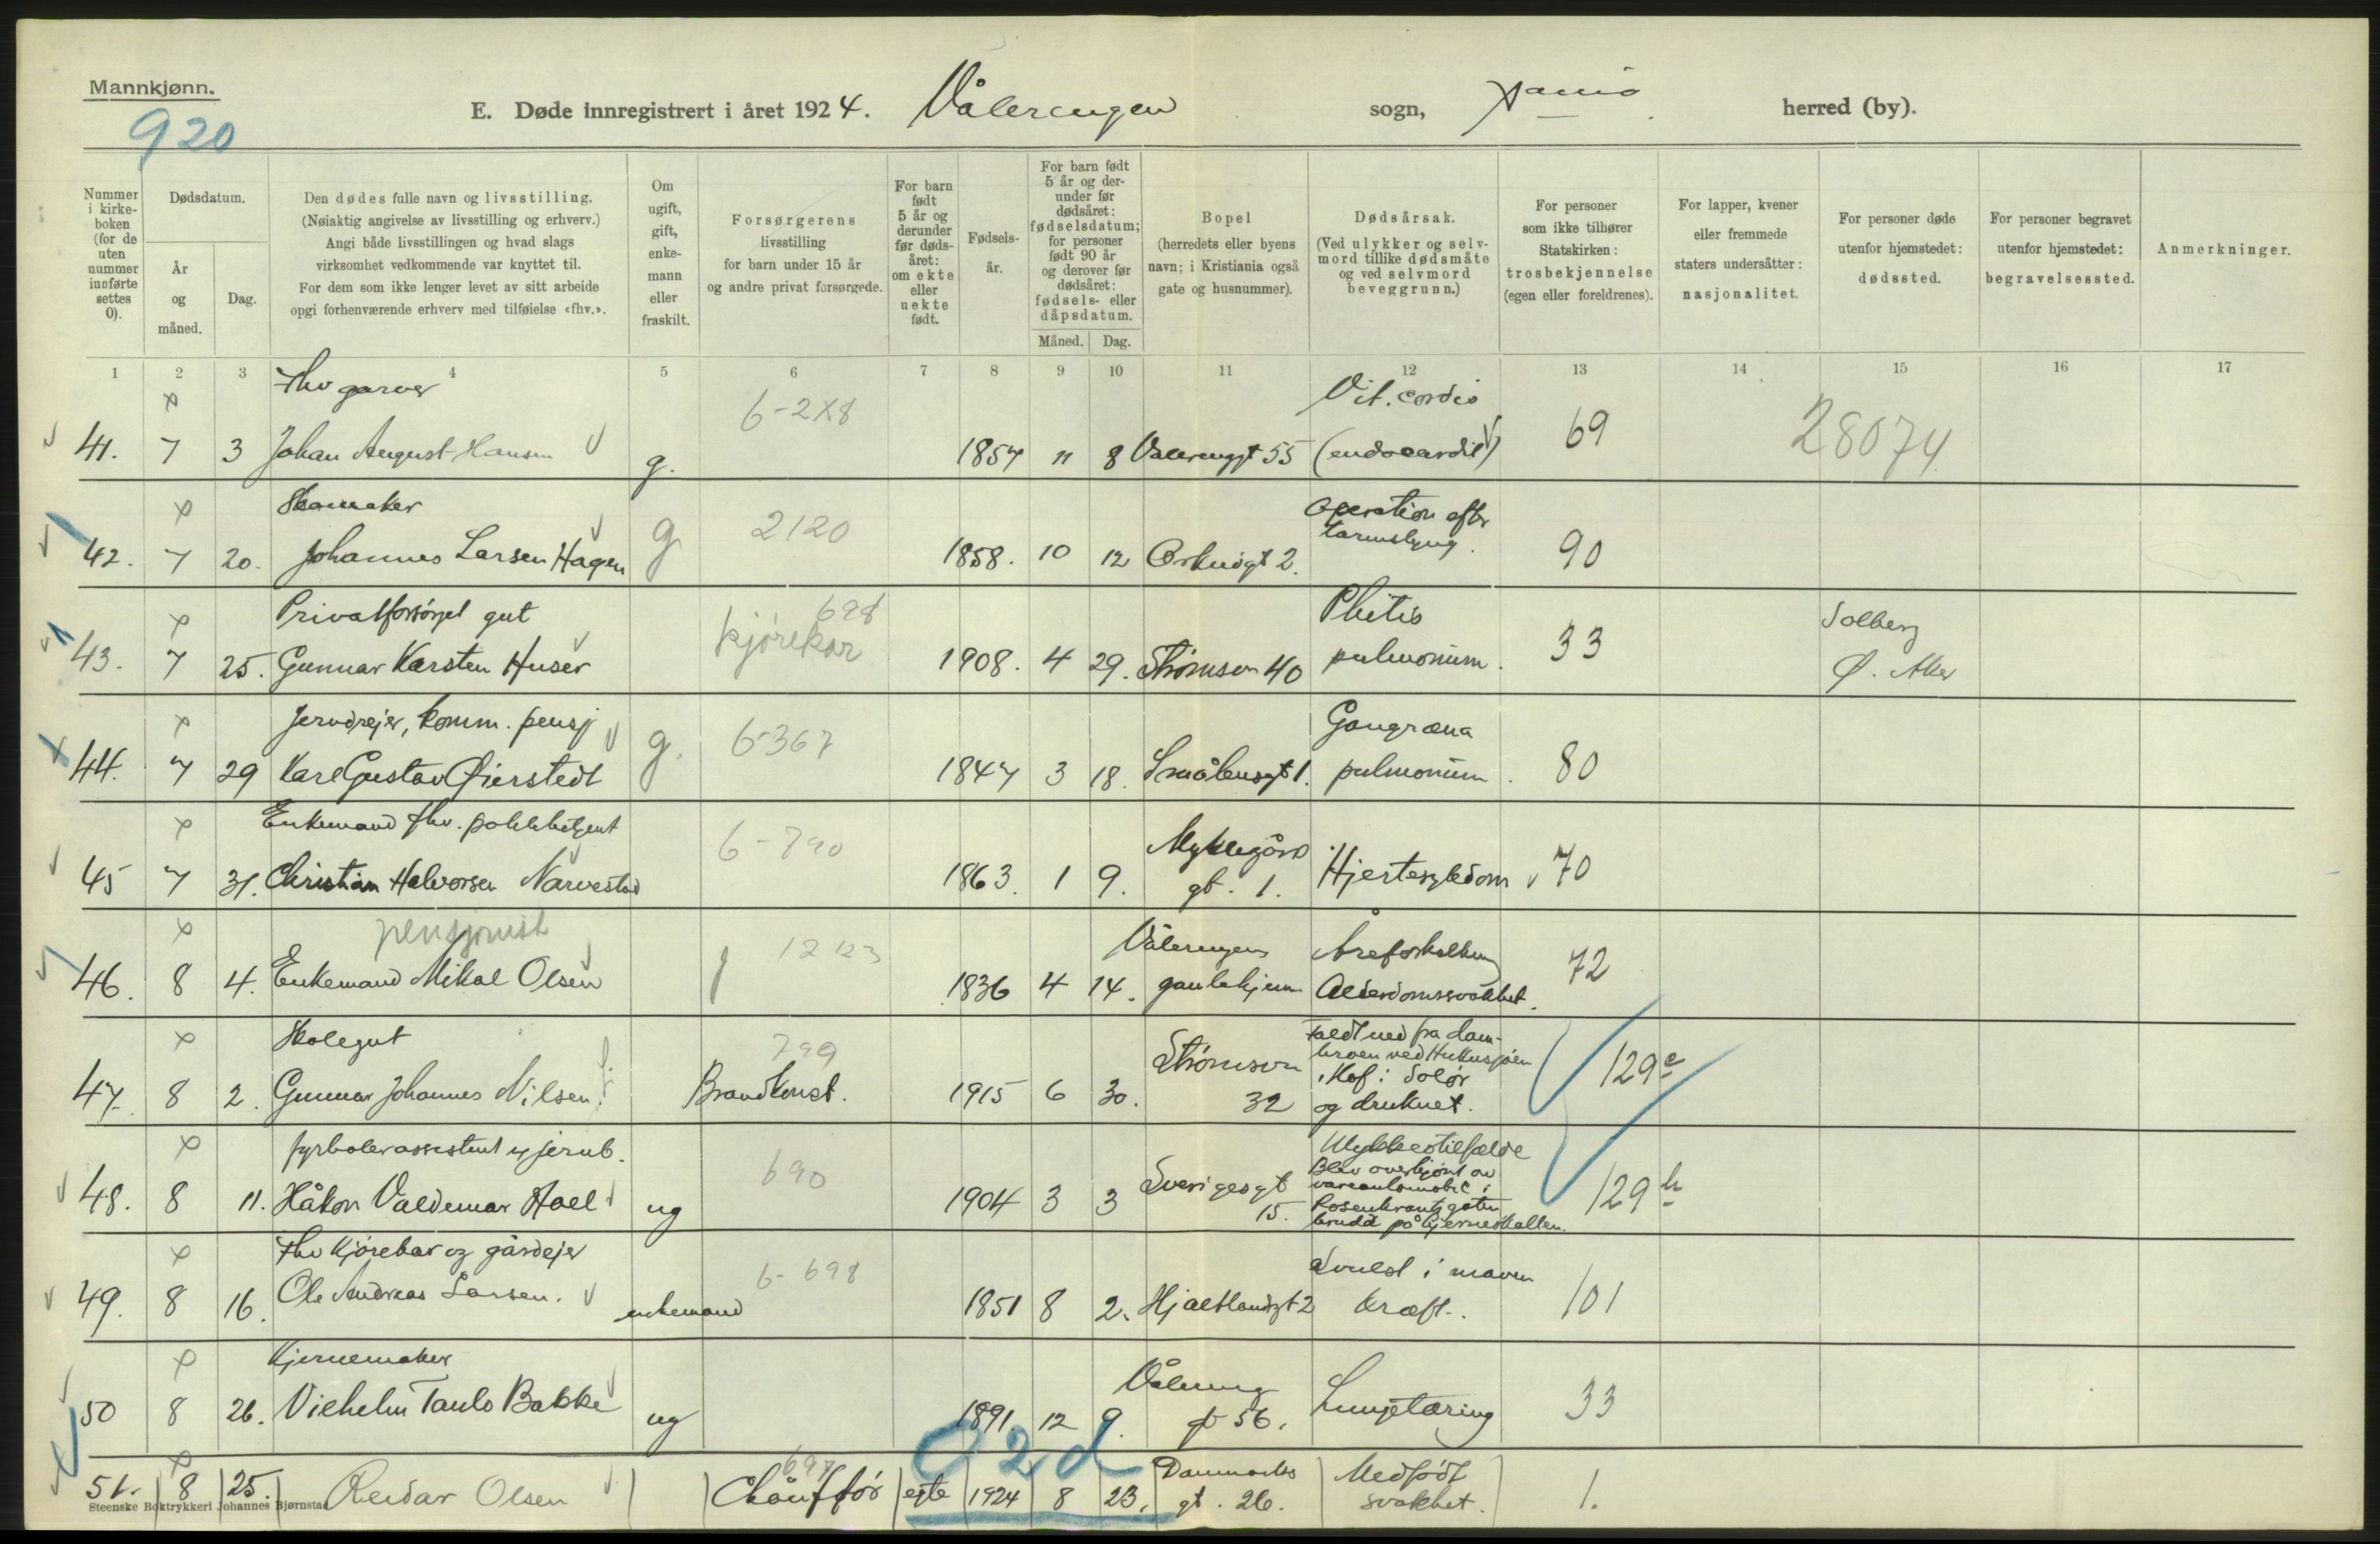 Mannkjønn.
920
E. Døde innregistrert i året 1924. Vålerengen sogn, Xania herred (by).
Nummer i kirkeboken (for de uten nummer innførte settes 0).
Dødsdatum.
År og måned.
Dag.
Den dødes fulle navn og livsstilling.
(Nøiaktig angivelse av livsstilling og erhverv.)
Angi både livsstillingen og hvad slags
virksomhet vedkommende var knyttet til.
For dem som ikke lenger levet av sitt arbeide
opgi forhenværende erhverv med tilføielse «fhv.».
Om ugift, gift, enkemann eller fraskilt.
Forsørgerens
livsstilling
for barn under 15 år
og andre privat forsørgede.
For barn født 5 år og derunder før dødsåret: om ekte eller uekte født.
Fødselsår.
For barn født 5 år og derunder før dødsåret: fødselsdatum; for personer født 90 år og derover før dødsåret: fødsels- eller dåpsdatum.
Måned. Dag.
Bopel
(herredets eller byens
navn; i Kristiania også
gate og husnummer).
Dødsårsak.
(Ved ulykker og selvmord tillike dødsmåte og ved selvmord beveggrunn.)
For personer
som ikke tilhører
Statskirken:
trosbekjennelse
(egen eller foreldrenes).
For lapper, kvener
eller fremmede
staters undersåtter:
nasjonalitet.
For personer døde
utenfor hjemstedet:
dødssted.
For personer begravet
utenfor hjemstedet:
begravelsessted.
Anmerkninger.
1 2 3 4 5 6 7 8 9 10 11 12 13 14 15 16 17
Fhv garver 6-2X8 Vit. cordis
41. 7 3 Johan August Hansen g. 1857 11 8 Vålerenggt 55 (endocardit) 69 28074
Skomaker 2120 Operation efter tarmslyng.
42. 7 20. Johannes Larsen Hagen g 1858. 10 12 Orknøigt 2. 90
Privatforsørget gut 698 Phitis Solberg
43. 7 25. Gunnar Karsten Huser kjørekar 1908. 4 29. Strømsvn 40 pulmonum. 33 Ø. Aker
Jerndrejer, komm. pensj 6-367 Gangræna
44. 7 29 Karl Gustav Øierstedt g. 1847 3 18. Smålensgt 1. pulmonum. 80
Enkemand fhv. politibetjent 6-790 Myklegård
45 7 31. Christian Halvorsen Narvestad 1863. 1 9. gt. 1. Hjertesykdom 70
pensjonist 12123 Vålerengens Åreforkalkning
46. 8 4. Enkemand Mikal Olsen 1836 4 14. gamlehjem Alderdomssvakhet. 72
Skolegut 799 Strømsvn Faldt ned fra dam-
broen ved
i Hof i Solør
47. 8 2. Gunnar Johannes Nilsen. Brandkonst. 1915 6 30. 32 og druknet. 129e
fyrbøterassistent v jernb. 690 Ulykkestilfælde
Blev overkjørt av
vareautomobil i
48. 8 11. Håkon Valdemar Hoel ug 1904 3 3 Sverigesgt 15. Rosenkrantzgaten
brudd på hjerneskallen. 129h
Fhv kjørekar og gårdejer 6-698 Svulst i maven
49. 8 16. Ole Andreas Larsen. enkemand 1851 8 2. Hjaltlandgt 2 kræft. 101
Kjernemaker Vålereng
50 8 26. Vilhelm Paulo Bakke ug 1891 12 9. gt 56. Lungetæring 33
O 2 d
697 Danmarks Medfødt
51. 8 25. Reidar Olsen Chauffør egte 1924 8 23. gt. 26. svakhet. 1.
Steenske Boktrykkeri Johannes Bjørnstad